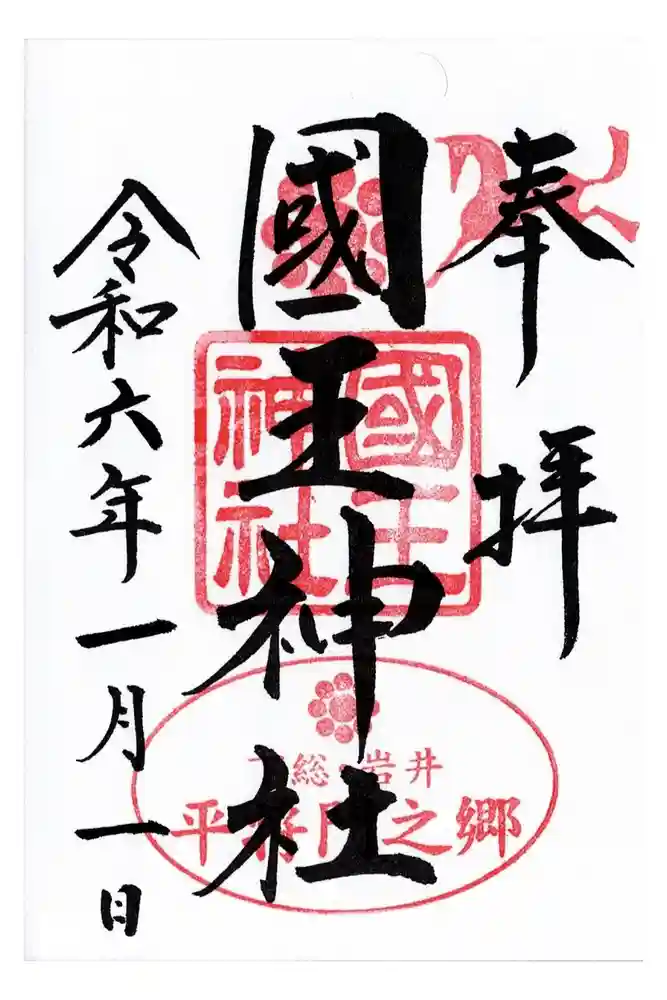 奉拝
國王神社
令和六年一月一日
國王神社
総 岩井
平将門之郷